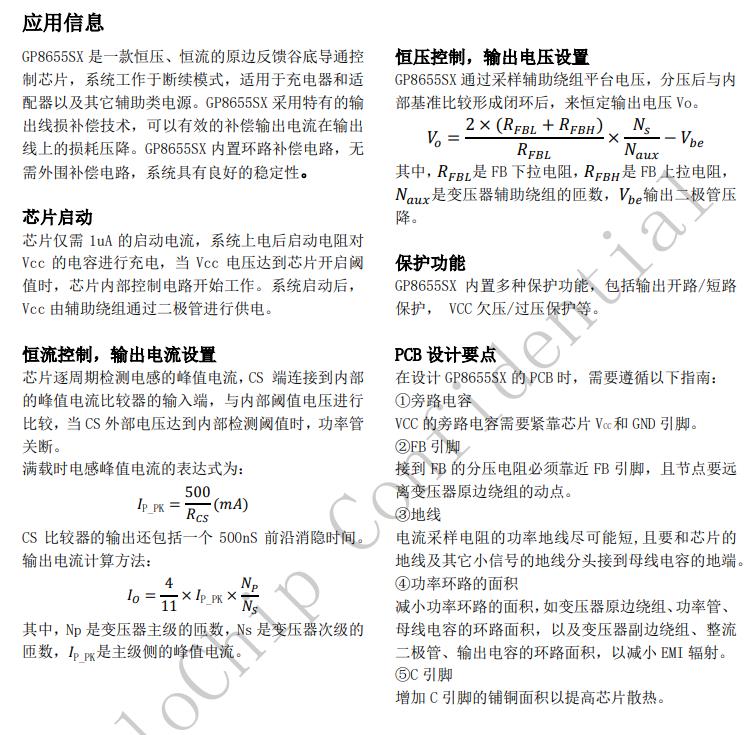 应用信息
GP8655SX 是一款恒压、恒流的原边反馈谷底导通控
制芯片，系统工作于断续模式，适用于充电器和适
配器以及其它辅助类电源。GP8655SX 采用特有的输
出线损补偿技术，可以有效的补偿输出电流在输出
线上的损耗压降。GP8655SX 内置环路补偿电路，无
需外围补偿电路，系统具有良好的稳定性。
芯片启动
芯片仅需 1uA 的启动电流，系统上电后启动电阻对
Vcc 的电容进行充电，当 Vcc 电压达到芯片开启阈
值时，芯片内部控制电路开始工作。系统启动后，
Vcc 由辅助绕组通过二极管进行供电。
恒流控制，输出电流设置
芯片逐周期检测电感的峰值电流，CS 端连接到内部
的峰值电流比较器的输入端，与内部阈值电压进行
比较，当 CS 外部电压达到内部检测阈值时，功率管
关断。
满载时电感峰值电流的表达式为：
I_{P_PK} = \frac{500}{R_{CS}} (mA)
CS 比较器的输出还包括一个 500nS 前沿消隐时间。
输出电流计算方法：
I_O = \frac{4}{11} × I_{P_PK} × \frac{N_P}{N_S}
其中，Np 是变压器主级的匝数，Ns 是变压器次级的
匝数，I_{P_PK}是主级侧的峰值电流。
恒压控制，输出电压设置
GP8655SX 通过采样辅助绕组平台电压，分压后与内
部基准比较形成闭环后，来恒定输出电压 Vo。
V_o = \frac{2 × (R_{FBL} + R_{FBH})}{R_{FBL}} × \frac{N_s}{N_{aux}} − V_{be}
其中，R_{FBL}是 FB 下拉电阻，R_{FBH}是 FB 上拉电阻，
N_{aux}是变压器辅助绕组的匝数，V_{be}输出二极管压
降。
保护功能
GP8655SX 内置多种保护功能，包括输出开路/短路
保护， VCC 欠压/过压保护等。
PCB 设计要点
在设计 GP8655SX 的 PCB 时，需要遵循以下指南：
①旁路电容
VCC 的旁路电容需要紧靠芯片 Vcc 和 GND 引脚。
②FB 引脚
接到 FB 的分压电阻必须靠近 FB 引脚，且节点要远
离变压器原边绕组的动点。
③地线
电流采样电阻的功率地线尽可能短,且要和芯片的
地线及其它小信号的地线分头接到母线电容的地端。
④功率环路的面积
减小功率环路的面积，如变压器原边绕组、功率管、
母线电容的环路面积，以及变压器副边绕组、整流
二极管、输出电容的环路面积，以减小 EMI 辐射。
⑤C 引脚
增加 C 引脚的铺铜面积以提高芯片散热。
loChip Confidential